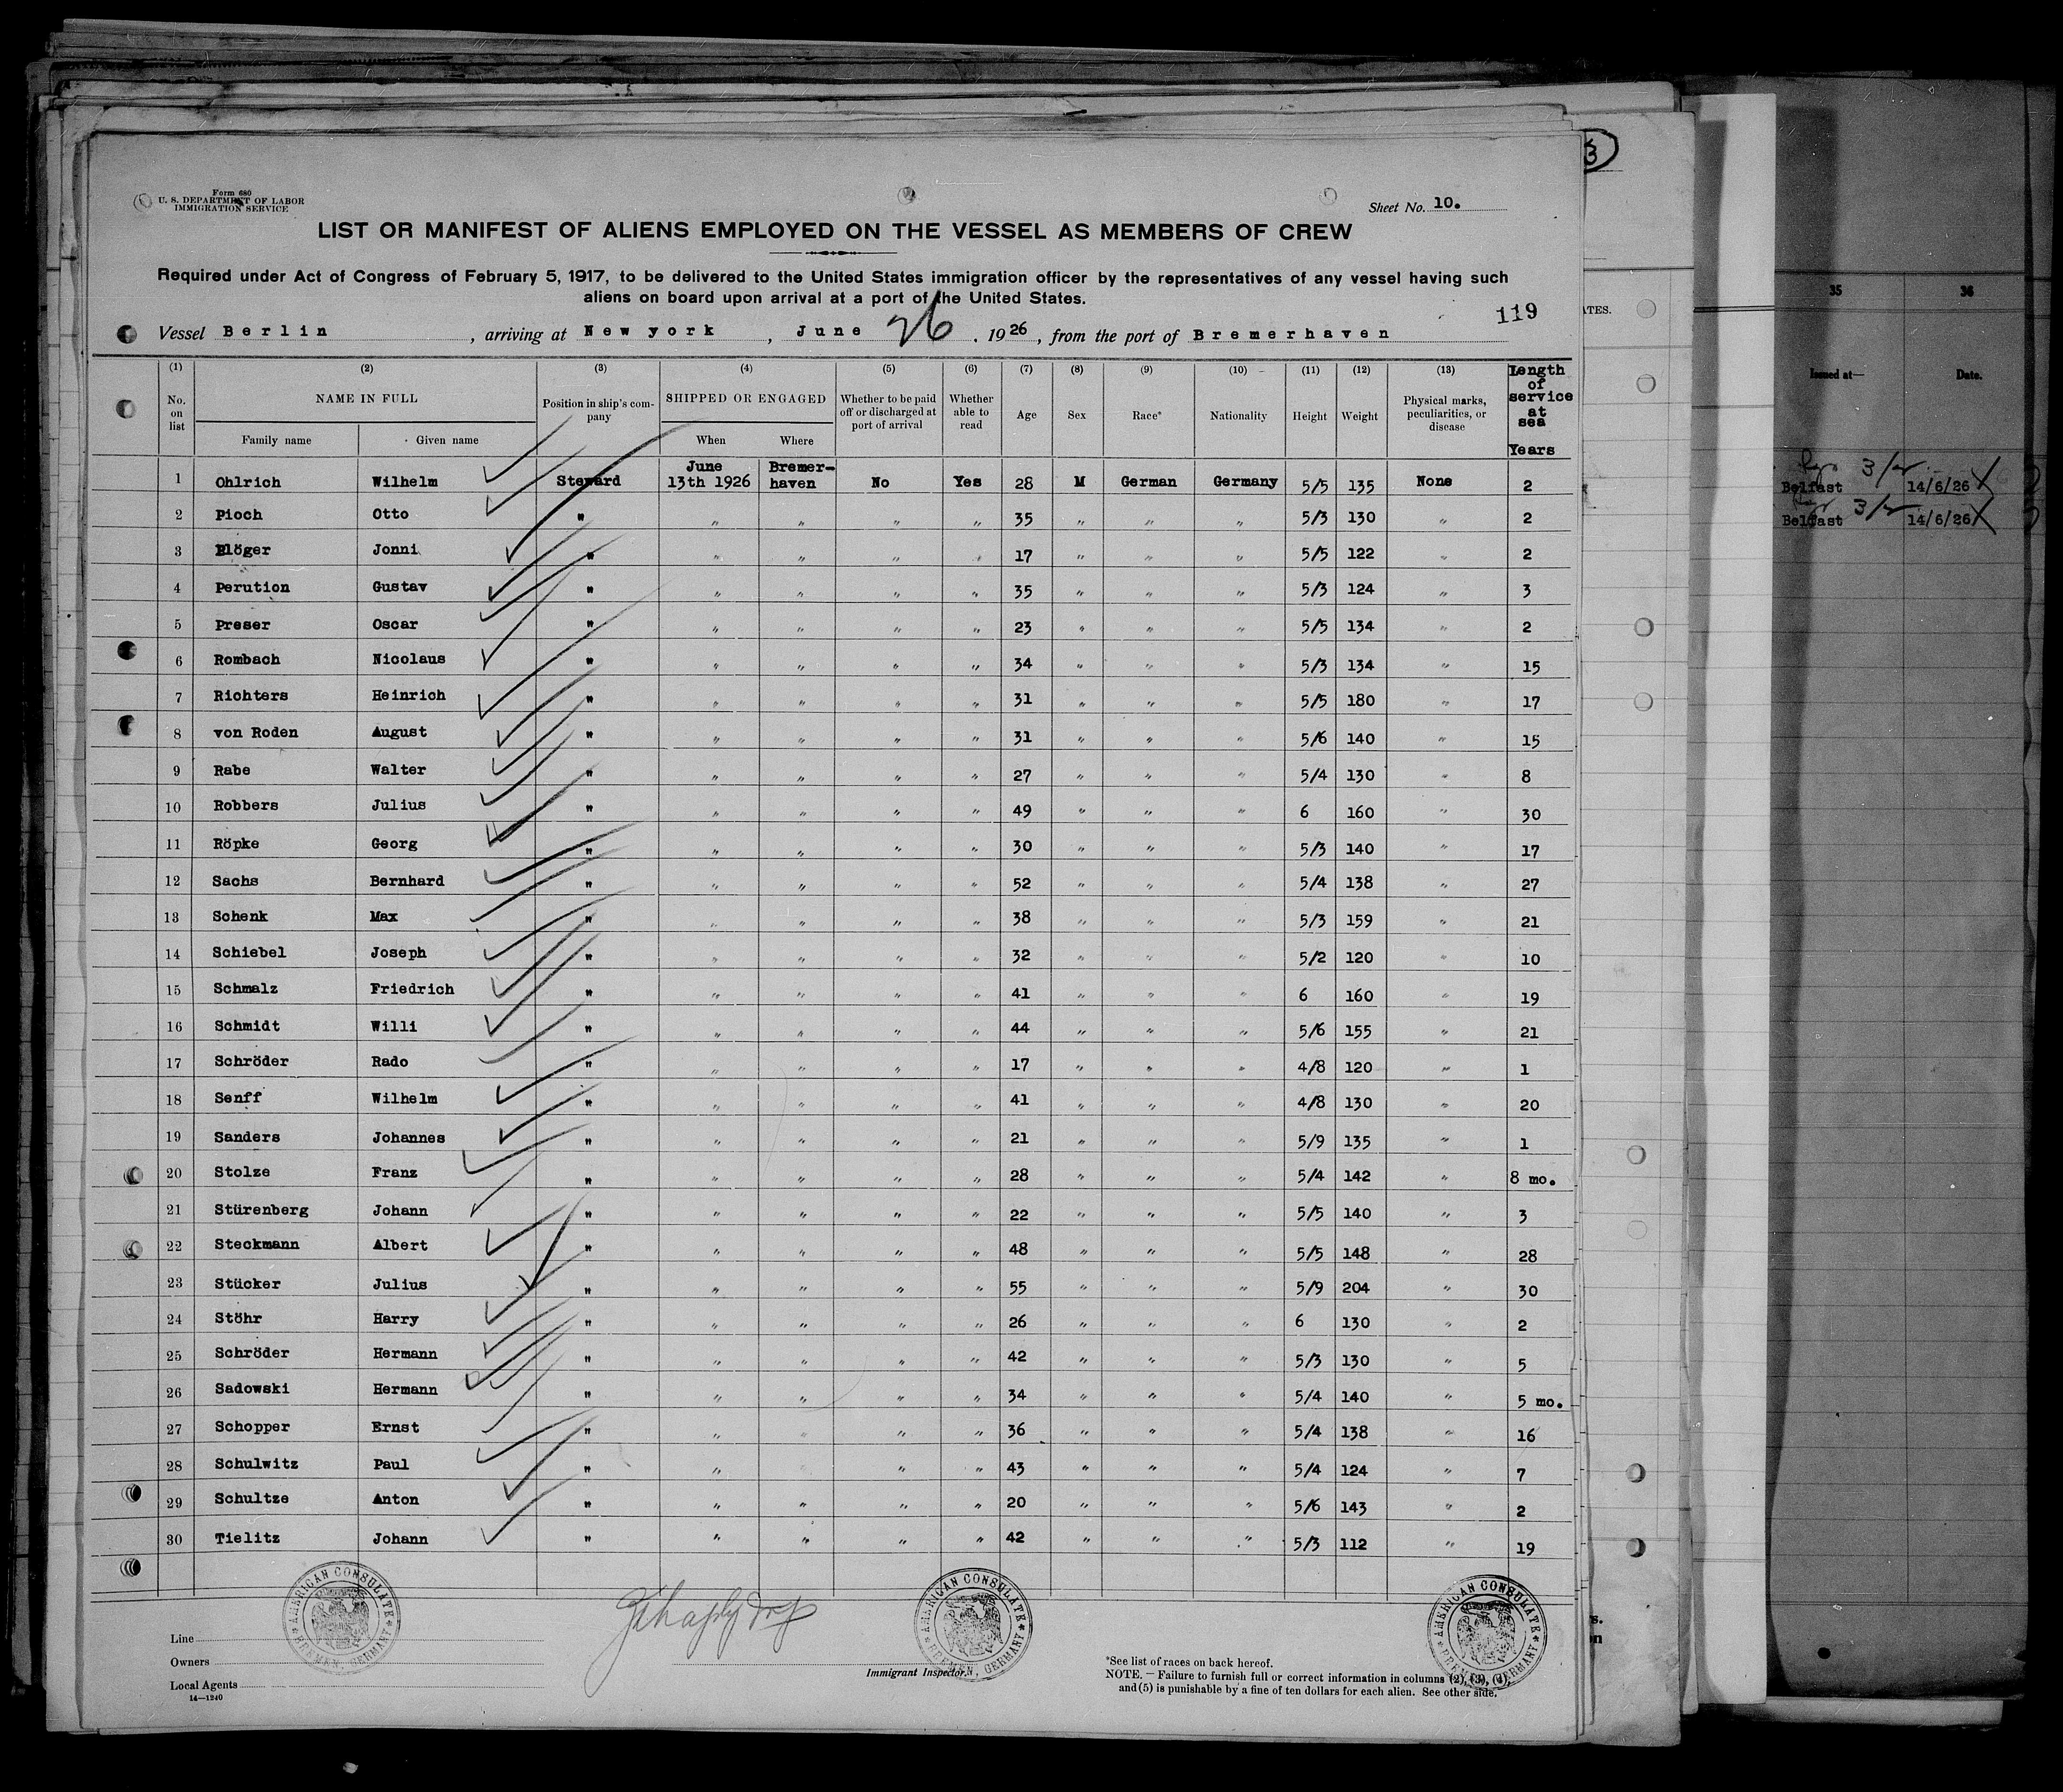 Form 680
U. S. DEPARTMENT OF LABOR
IMMIGRATION SERVICE
Sheet No. 10.
LIST OR MANIFEST OF ALIENS EMPLOYED ON THE VESSEL AS MEMBERS OF CREW
Required under Act of Congress of February 5, 1917, to be delivered to the United States immigration officer by the representatives of any vessel having such
aliens on board upon arrival at a port of the United States.
119
Vessel Berlin, arriving at New york, June 26, 1926, from the port of Bremerhaven
(1) (2) (3) (4) (5) (6) (7) (8) (9) (10) (11) (12) (13)
No. on list NAME IN FULL Family name Given name Position in ship's company SHIPPED OR ENGAGED When Where Whether to be paid off or discharged at port of arrival Whether able to read Age Sex Race* Nationality Height Weight Physical marks, peculiarities, or disease Length of service at sea Years
1 Ohlrich Wilhelm Steward June 13th 1926 Bremer-haven No Yes 28 M German Germany 5/5 135 None 2
2 Pioch Otto " " " " " 35 " " " 5/3 130 " 2
3 Plöger Jonni " " " " " 17 " " " 5/5 122 " 2
4 Perution Gustav " " " " " 35 " " " 5/3 124 " 3
5 Preser Oscar " " " " " 23 " " " 5/5 134 " 2
6 Rombach Nicolaus " " " " " 34 " " " 5/3 134 " 15
7 Richters Heinrich " " " " " 31 " " " 5/5 180 " 17
8 von Roden August " " " " " 31 " " " 5/6 140 " 15
9 Rabe Walter " " " " " 27 " " " 5/4 130 " 8
10 Robbers Julius " " " " " 49 " " " 6 160 " 30
11 Röpke Georg " " " " " 30 " " " 5/3 140 " 17
12 Sachs Bernhard " " " " " 52 " " " 5/4 138 " 27
13 Schenk Max " " " " " 38 " " " 5/3 159 " 21
14 Schiebel Joseph " " " " " 32 " " " 5/2 120 " 10
15 Schmalz Friedrich " " " " " 41 " " " 6 160 " 19
16 Schmidt Willi " " " " " 44 " " " 5/6 155 " 21
17 Schröder Rado " " " " " 17 " " " 4/8 120 " 1
18 Senff Wilhelm " " " " " 41 " " " 4/8 130 " 20
19 Sanders Johannes " " " " " 21 " " " 5/9 135 " 1
20 Stolze Franz " " " " " 28 " " " 5/4 142 " 8 mo.
21 Stürenberg Johann " " " " " 22 " " " 5/5 140 " 3
22 Steckmann Albert " " " " " 48 " " " 5/5 148 " 28
23 Stücker Julius " " " " " 55 " " " 5/9 204 " 30
24 Stöhr Harry " " " " " 26 " " " 6 130 " 2
25 Schröder Hermann " " " " " 42 " " " 5/3 130 " 5
26 Sadowski Hermann " " " " " 34 " " " 5/4 140 " 5 mo.
27 Schopper Ernst " " " " " 36 " " " 5/4 138 " 16
28 Schulwitz Paul " " " " " 43 " " " 5/4 124 " 7
29 Schultze Anton " " " " " 20 " " " 5/6 143 " 2
30 Tielitz Johann " " " " " 42 " " " 5/3 112 " 19
AMERICAN CONSULATE BREMEN, GERMANY
AMERICAN CONSULATE BREMEN, GERMANY
AMERICAN CONSULATE BREMEN, GERMANY
Line
Owners
Local Agents
14—1240
Immigrant Inspector.
*See list of races on back hereof.
NOTE. — Failure to furnish full or correct information in columns (2), (3), (4),
and (5) is punishable by a fine of ten dollars for each alien. See other side.
35 36
Issued at— Date.
3/
Belfast 14/6/26
3/
Belfast 14/6/26